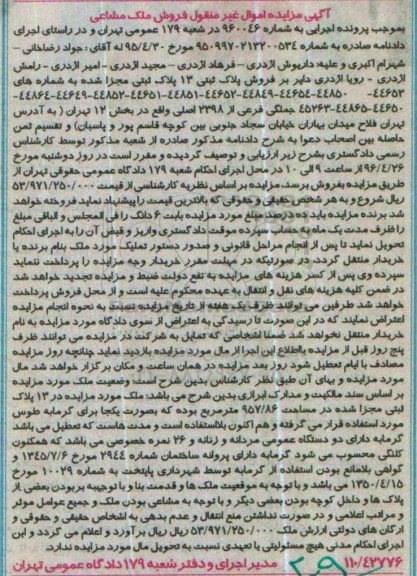 آگهی مزایده اموال غیر منقول فروش ملک مشاعی
بموجب پرونده اجرایی به شماره ۹۶۰۰۴۶ در شعبه ۱۷۹ عمومی تهران و در راستای اجرای
دادنامه صادره به شماره ۹۵۰۹۹۷۰۲۱۳۲۰۰۵۳۴ مورخ ۹۵/۴/۳۰ له آقای: جواد رضاخانی -
شهرام اکبری و علیه: داریوش اژدری - فرهاد اژدری - مجید اژدری - امیر اژدری - رامش
اژدری - رویا اژدری دایر بر فروش پلاک ثبتی ۱۳ پلاک ثبتی مجزا شده به شماره های
۴۴۶۵۳- ۴۴۸۵۰-۴۴۶۵۴-۴۴۸۴۹-۴۴۶۵۲-۴۴۸۵۱-۴۴۶۵۱-۴۴۸۵۲-۴۴۶۴۹-۴۴۸۶۴-
۴۴۶۵۰-۴۴۸۶۵-۴۵۲۶۳ جملگی فرعی از ۲۳۹۸ اصلی واقع در بخش ۱۲ تهران ( به آدرس
تهران فلاح میدان بهاران خیابان سجاد جنوبی بین کوچه قاسم پور و پاسبان) و تقسیم ثمن
حاصله بین اصحاب دعوا به شرح دادنامه مذکور صادره از شعبه مذکور توسط کارشناس
رسمی دادگستری بشرح زیر ارزیابی و توصیف گردیده و مقرر است در روز دوشنبه مورخ
۹۶/۴/۲۶ از ساعت ۹ الی ۱۰ در محل اجرای احکام شعبه ۱۷۹ دادگاه عمومی حقوقی تهران از
طریق مزایده بفروش برسد. مزایده بر اساس نظریه کارشناسی از قیمت ۵۳/۹۷۱/۲۵۰/۰۰۰
ریال شروع و به هر شخص حقیقی و حقوقی که بالاترین قیمت را پیشنهاد نماید فروخته خواهد
شد برنده مزایده باید ده درصد مبلغ مورد مزایده بابت ۶ دانگ را فی المجلس و الباقی مبلغ
را ظرف مدت یک ماه به حساب سپرده موقت دادگستری واریز و قبض آن را به اجرای احکام
تحویل نماید تا پس از انجام مراحل قانونی و صدور دستور تملیک مورد ملک بنام برنده یا
خریدار منتقل گردد، در صورتیکه در مهلت مقرر خریدار وجه مزایده را پرداخت ننماید
سپرده وی پس از کسر هزینه های مزایده به نفع دولت ضبط و مزایده تجدید خواهد شد
در ضمن کلیه هزینه های نقل و انتقال به عهده محکوم علیه است و از محل فروش پرداخت
خواهد شد طرفین می توانند ظرف یک هفته از تاریخ مزایده نسبت به نحوه انجام مزایده
اعتراض نمایند که در این صورت تا رسیدگی به اعتراض از سوی دادگاه مورد مزایده به نام
خریدار منتقل نخواهد شد ضمنا اشخاصی که تمایل به شرکت در مزایده می توانند ظرف
پنج روز قبل از مزایده با اطلاع این اجرا از مال مورد مزایده بازدید نماید چنانچه روز مزایده
مصادف با ایام تعطیل شود روز بعد مزایده در همان ساعت و مکان برگزار خواهد شد مال
مورد مزایده و بهای آن طبق نظر کارشناس بدین شرح است: وضعیت ملک مورد مزایده
بر اساس سند مالکیت و مدارک ابرازی بدین شرح می باشد: ملک مورد مزایده در ۱۳ پلاک
ثبتی مجزا شده در مساحت ۹۵۷/۸۶ مترمربع بوده که بصورت یکجا برای گرمابه طوس
مورد استفاده قرار می گرفته و هم اکنون بلااستفاده است و مدت هاست که تعطیل می باشد
گرمابه دارای دو دستگاه عمومی مردانه و زنانه و ۲۶ نمره خصوصی می باشد که همکنون
کلنگی محسوب می شود گرمابه دارای پروانه ساختمان شماره ۲۹۴۴ مورخ ۱۳۴۵/۷/۶ و
گواهی بلامانع بودن استفاده از گرمابه توسط شهرداری پایتخت به شماره ۱۰۰۲۹ مورخ
۱۳۵۰/۴/۱۵ می باشد و با توجه به موقعیت ملک ها و قدمت بنا و با توجه به بر بودن بعضی از
پلاک ها و داخل کوچه بودن بعضی دیگر و با توجه به مشاعی بودن ملک و جمیع عوامل موثر
و مراتب اعلامی و در صورت نداشتن منع انتقال و عدم بدهی به اشخاص حقیقی و حقوقی و
ارگان های دولتی ارزش ملک ۵۳/۹۷۱/۲۵۰/۰۰۰ ریال ریال برآورد و اعلام می گردد و این
اجرای احکام مدنی هیچ مسئولیتی یا تعهدی نسبت به تحویل مال مورد مزایده ندارد.
۱۱۰/۴۲۷۷۶ مدیر اجرای و دفتر شعبه ۱۷۹ دادگاه عمومی تهران